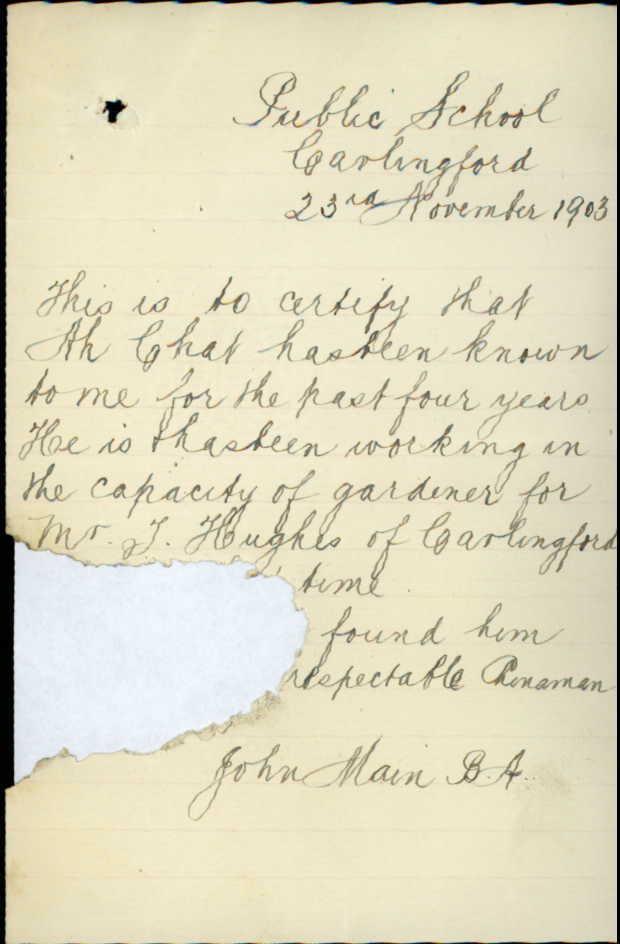 Public School
Carlingford
23rd November 1903
This is to certify that
Ah Chat has been known
to me for the past four years
He is & has been working in
the capacity of gardener for
Mr. J. Hughes of Carlingford
time.
found him
respectable Chinaman
John Main B.A.